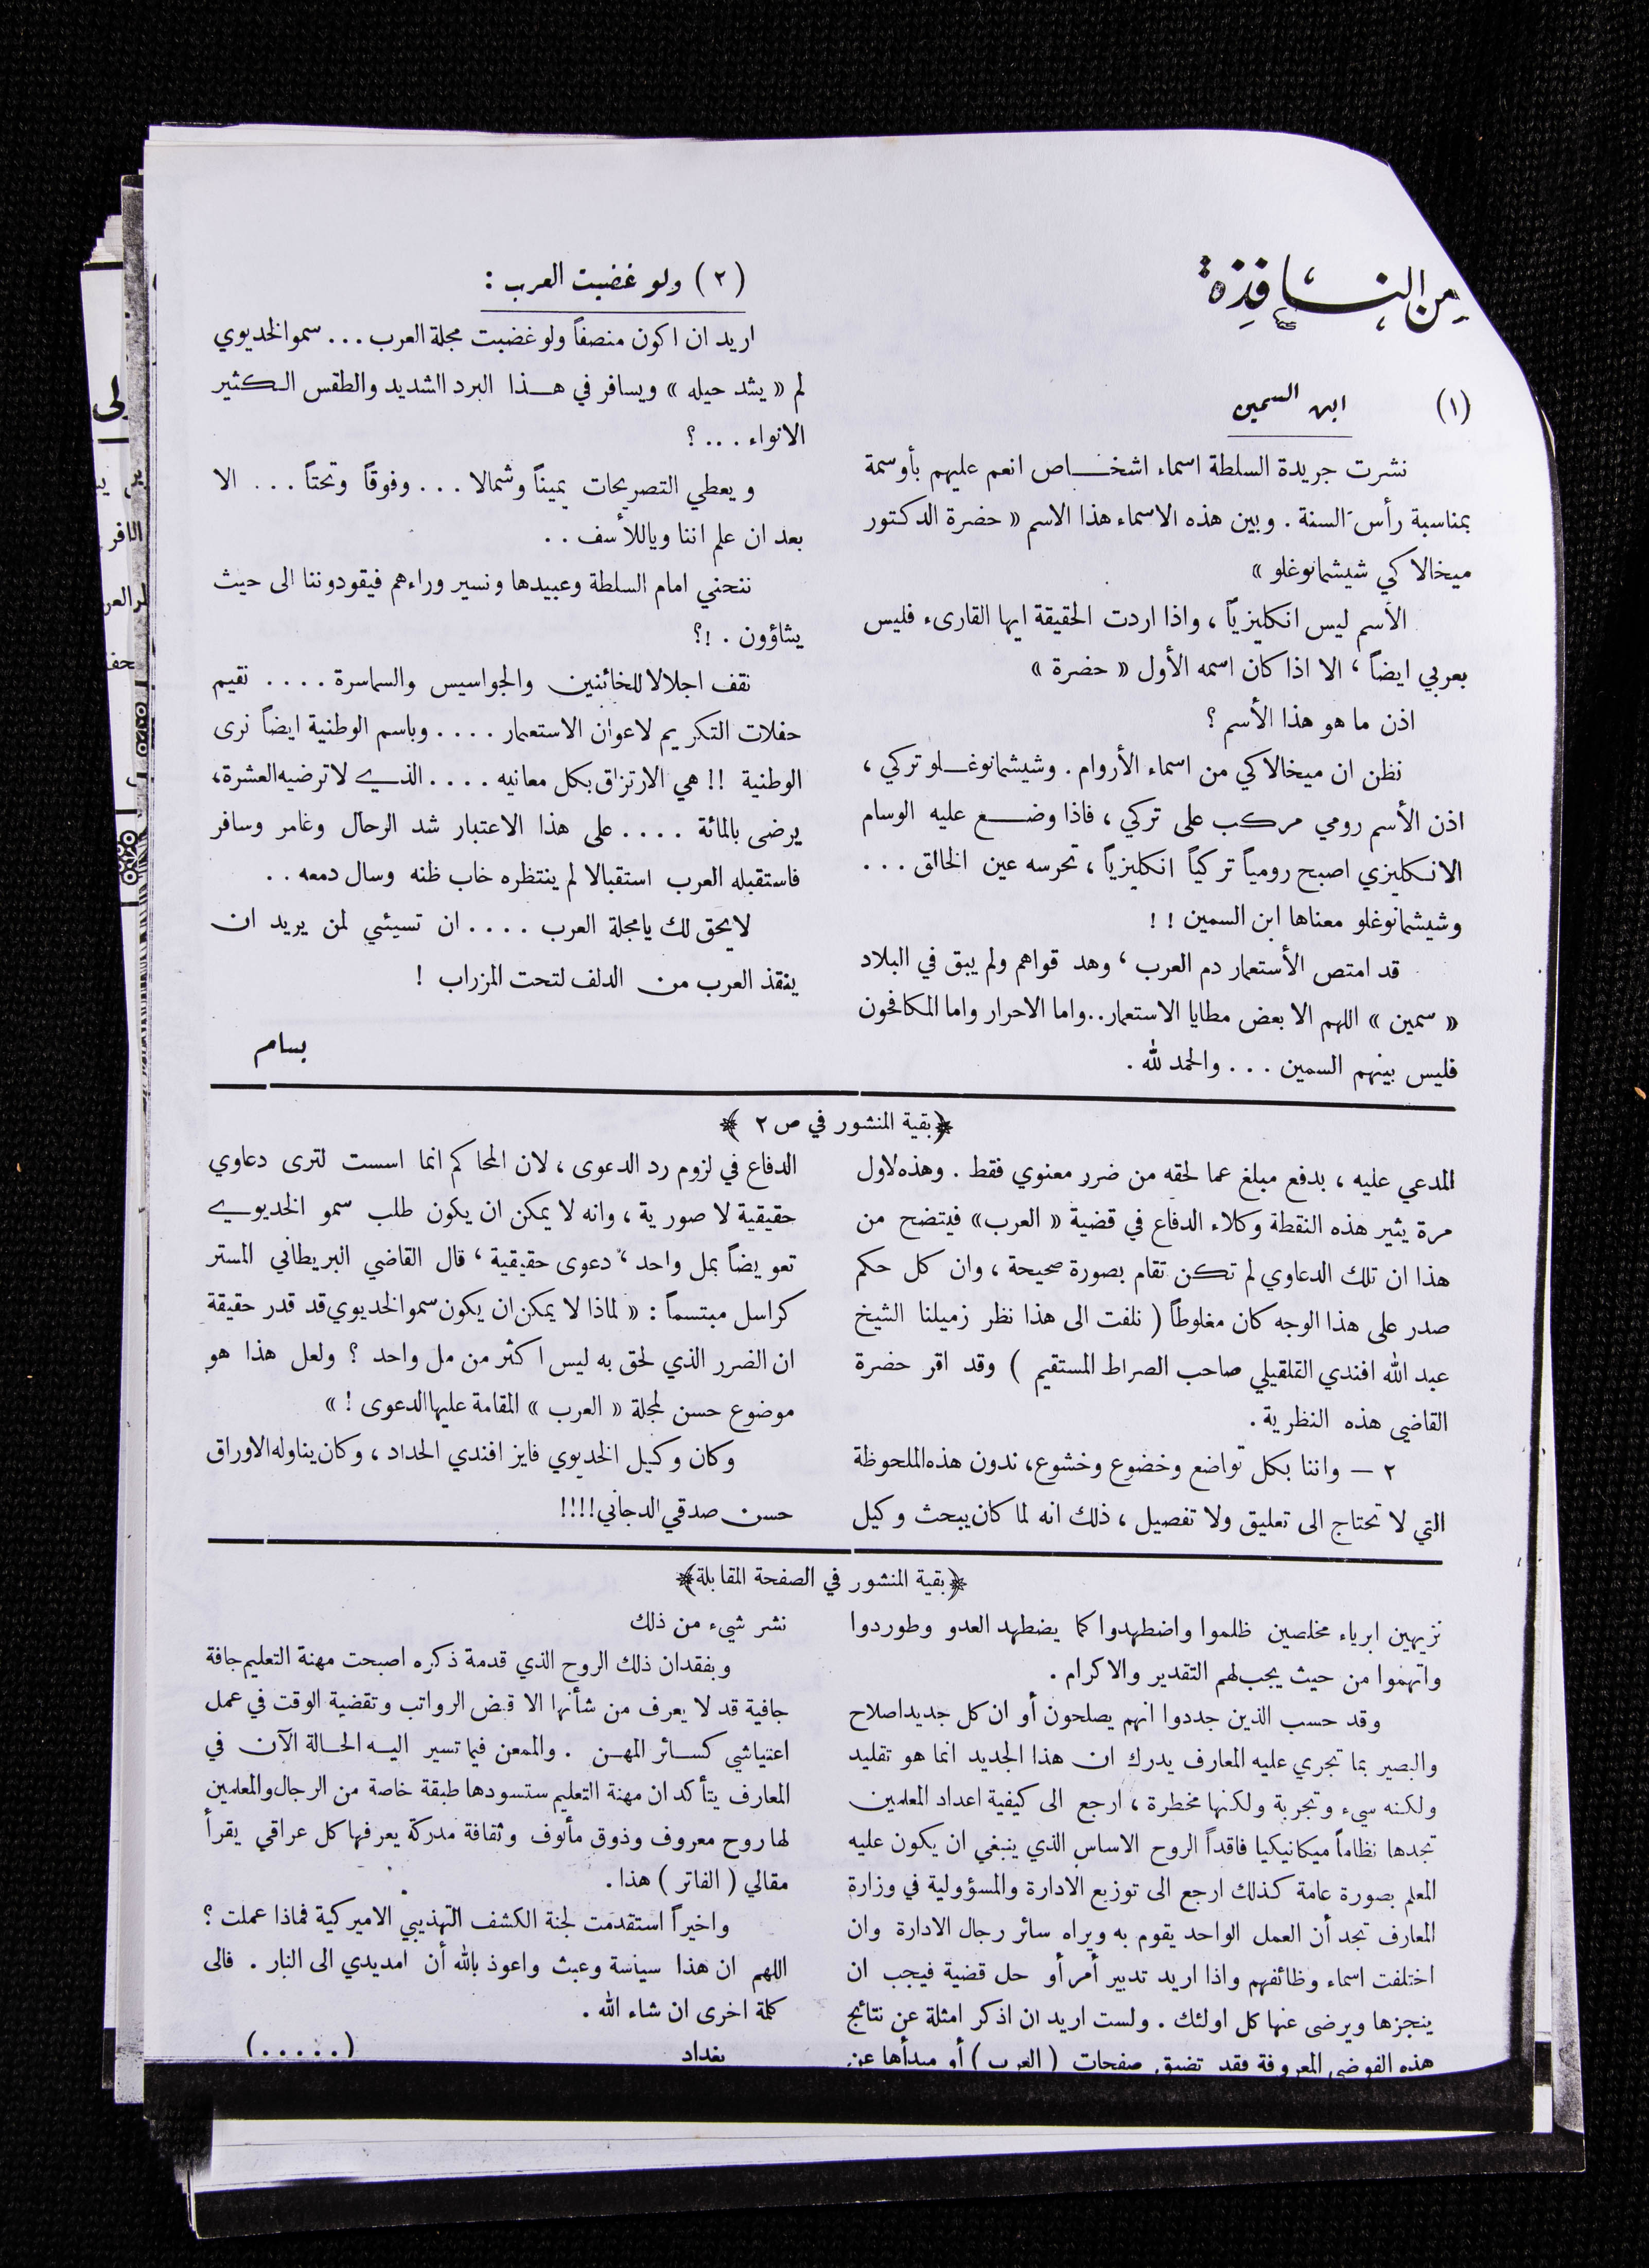 من النافذة
(١) ابن السمين
نشرت جريدة السلطة اسماء اشخاص انعم عليهم بأوسمة
بمناسبة رأس السنة . وبين هذه الاسماء هذا الاسم « حضرة الدكتور
ميخالاكي شيشمانوغلو »
الأسم ليس انكليزياً ، واذا اردت الحقيقة ايها القارىء فليس
بعربي ايضاً ، الا اذا كان اسمه الأول « حضرة »
اذن ما هو هذا الأسم ؟
نظن ان ميخالاكي من اسماء الأروام . وشيشمانوغلو تركي ،
اذن الأسم رومي مركب على تركي ، فاذا وضع عليه الوسام
الانكليزي اصبح رومياً تركياً انكليزياً ، تحرسه عين الخالق . . .
وشيشمانوغلو معناها ابن السمين ! !
قد امتص الأستعمار دم العرب ، وهد قواهم ولم يبق في البلاد
« سمين » اللهم الا بعض مطايا الاستعمار . . واما الاحرار واما المكافحون
فليس بينهم السمين . . . والحمد لله .
(٢) ولو غضبت العرب :
اريد ان اكون منصفاً ولو غضبت مجلة العرب . . . سمو الخديوي
لم « يشد حيله » ويسافر في هذا البرد الشديد والطقس الكثير
الانواء . . . ؟
ويعطي التصريحات يميناً وشمالا . . . وفوقاً وتحتاً . . . الا
بعد ان علم اننا وياللأسف . .
ننحني امام السلطة وعبيدها ونسير وراءهم فيقودوننا الى حيث
يشاؤون . !؟
نقف اجلالا للخائنين والجواسيس والسماسرة . . . . نقيم
حفلات التكريم لاعوان الاستعمار . . . . وباسم الوطنية ايضاً نرى
الوطنية !! هي الارتزاق بكل معانيه . . . . الذي لا ترضيه العشرة،
يرضى بالمائة . . . . على هذا الاعتبار شد الرحال وغامر وسافر
فاستقبله العرب استقبالا لم ينتظره خاب ظنه وسال دمعه . .
لا يحق لك يا مجلة العرب . . . . ان تسيئي لمن يريد ان
ينقذ العرب من الدلف لتحت المزراب !
بسام
﴿بقية المنشور في ص ٢ ﴾
المدعي عليه ، بدفع مبلغ عما لحقه من ضرر معنوي فقط . وهذه لاول
مرة يثير هذه النقطة وكلاء الدفاع في قضية « العرب» فيتضح من
هذا ان تلك الدعاوي لم تكن تقام بصورة صحيحة ، وان كل حكم
صدر على هذا الوجه كان مغلوطاً ( نلفت الى هذا نظر زميلنا الشيخ
عبد الله افندي القلقيلي صاحب الصراط المستقيم ) وقد اقر حضرة
القاضي هذه النظرية .
٢ — واننا بكل تواضع وخضوع وخشوع، ندون هذه الملحوظة
التي لا تحتاج الى تعليق ولا تفصيل ، ذلك انه لما كان يبحث وكيل
الدفاع في لزوم رد الدعوى ، لان المحاكم انما اسست لترى دعاوي
حقيقية لا صورية ، وانه لا يمكن ان يكون طلب سمو الخديوي
تعويضاً بمل واحد ، دعوى حقيقية ، قال القاضي البريطاني المستر
كراسل مبتسماً : « لماذا لا يمكن ان يكون سمو الخديوي قد قدر حقيقة
ان الضرر الذي لحق به ليس اكثر من مل واحد ؟ ولعل هذا هو
موضوع حسن لمجلة « العرب » المقامة عليها الدعوى ! »
وكان وكيل الخديوي فايز افندي الحداد ، وكان يناوله الاوراق
حسن صدقي الدجاني!!!!
﴿بقية المنشور في الصفحة المقابلة﴾
نزيهين ابرياء مخلصين ظلموا واضطهدوا كما يضطهد العدو وطوردوا
واتهموا من حيث يجب لهم التقدير والاكرام .
وقد حسب الذين جددوا انهم يصلحون أو ان كل جديد اصلاح
والبصير بما تجري عليه المعارف يدرك ان هذا الجديد انما هو تقليد
ولكنه سيء وتجربة ولكنها مخطرة ، ارجع الى كيفية اعداد المعلمين
تجدها نظاماً ميكانيكيا فاقداً الروح الاساس الذي ينبغي ان يكون عليه
المعلم بصورة عامة كذلك ارجع الى توزيع الادارة والمسؤولية في وزارة
المعارف تجد أن العمل الواحد يقوم به ويراه سائر رجال الادارة وان
اختلفت اسماء وظائفهم واذا اريد تدبير أمر أو حل قضية فيجب ان
ينجزها ويرضى عنها كل اولئك . ولست اريد ان اذكر امثلة عن نتائج
هذه الفوضى المعروفة فقد تضيق صفحات ( العرب ) أو مبدأها عن
نشر شيء من ذلك
وبفقدان ذلك الروح الذي قدمة ذكره اصبحت مهنة التعليم جافة
جافية قد لا يعرف من شأنها الا قبض الرواتب وتقضية الوقت في عمل
اعتياشي كسائر المهن . والممعن فيما تسير اليه الحالة الآن في
المعارف يتأكد ان مهنة التعليم ستسودها طبقة خاصة من الرجال والمعلمين
لها روح معروف وذوق مألوف وثقافة مدركة يعرفها كل عراقي يقرأ
مقالي ( الفاتر ) هذا .
واخيراً استقدمت لجنة الكشف التهذيبي الاميركية فماذا عملت ؟
اللهم ان هذا سياسة وعبث واعوذ بالله أن امد يدي الى النار . فالى
كلمة اخرى ان شاء الله .
بغداد (.....)